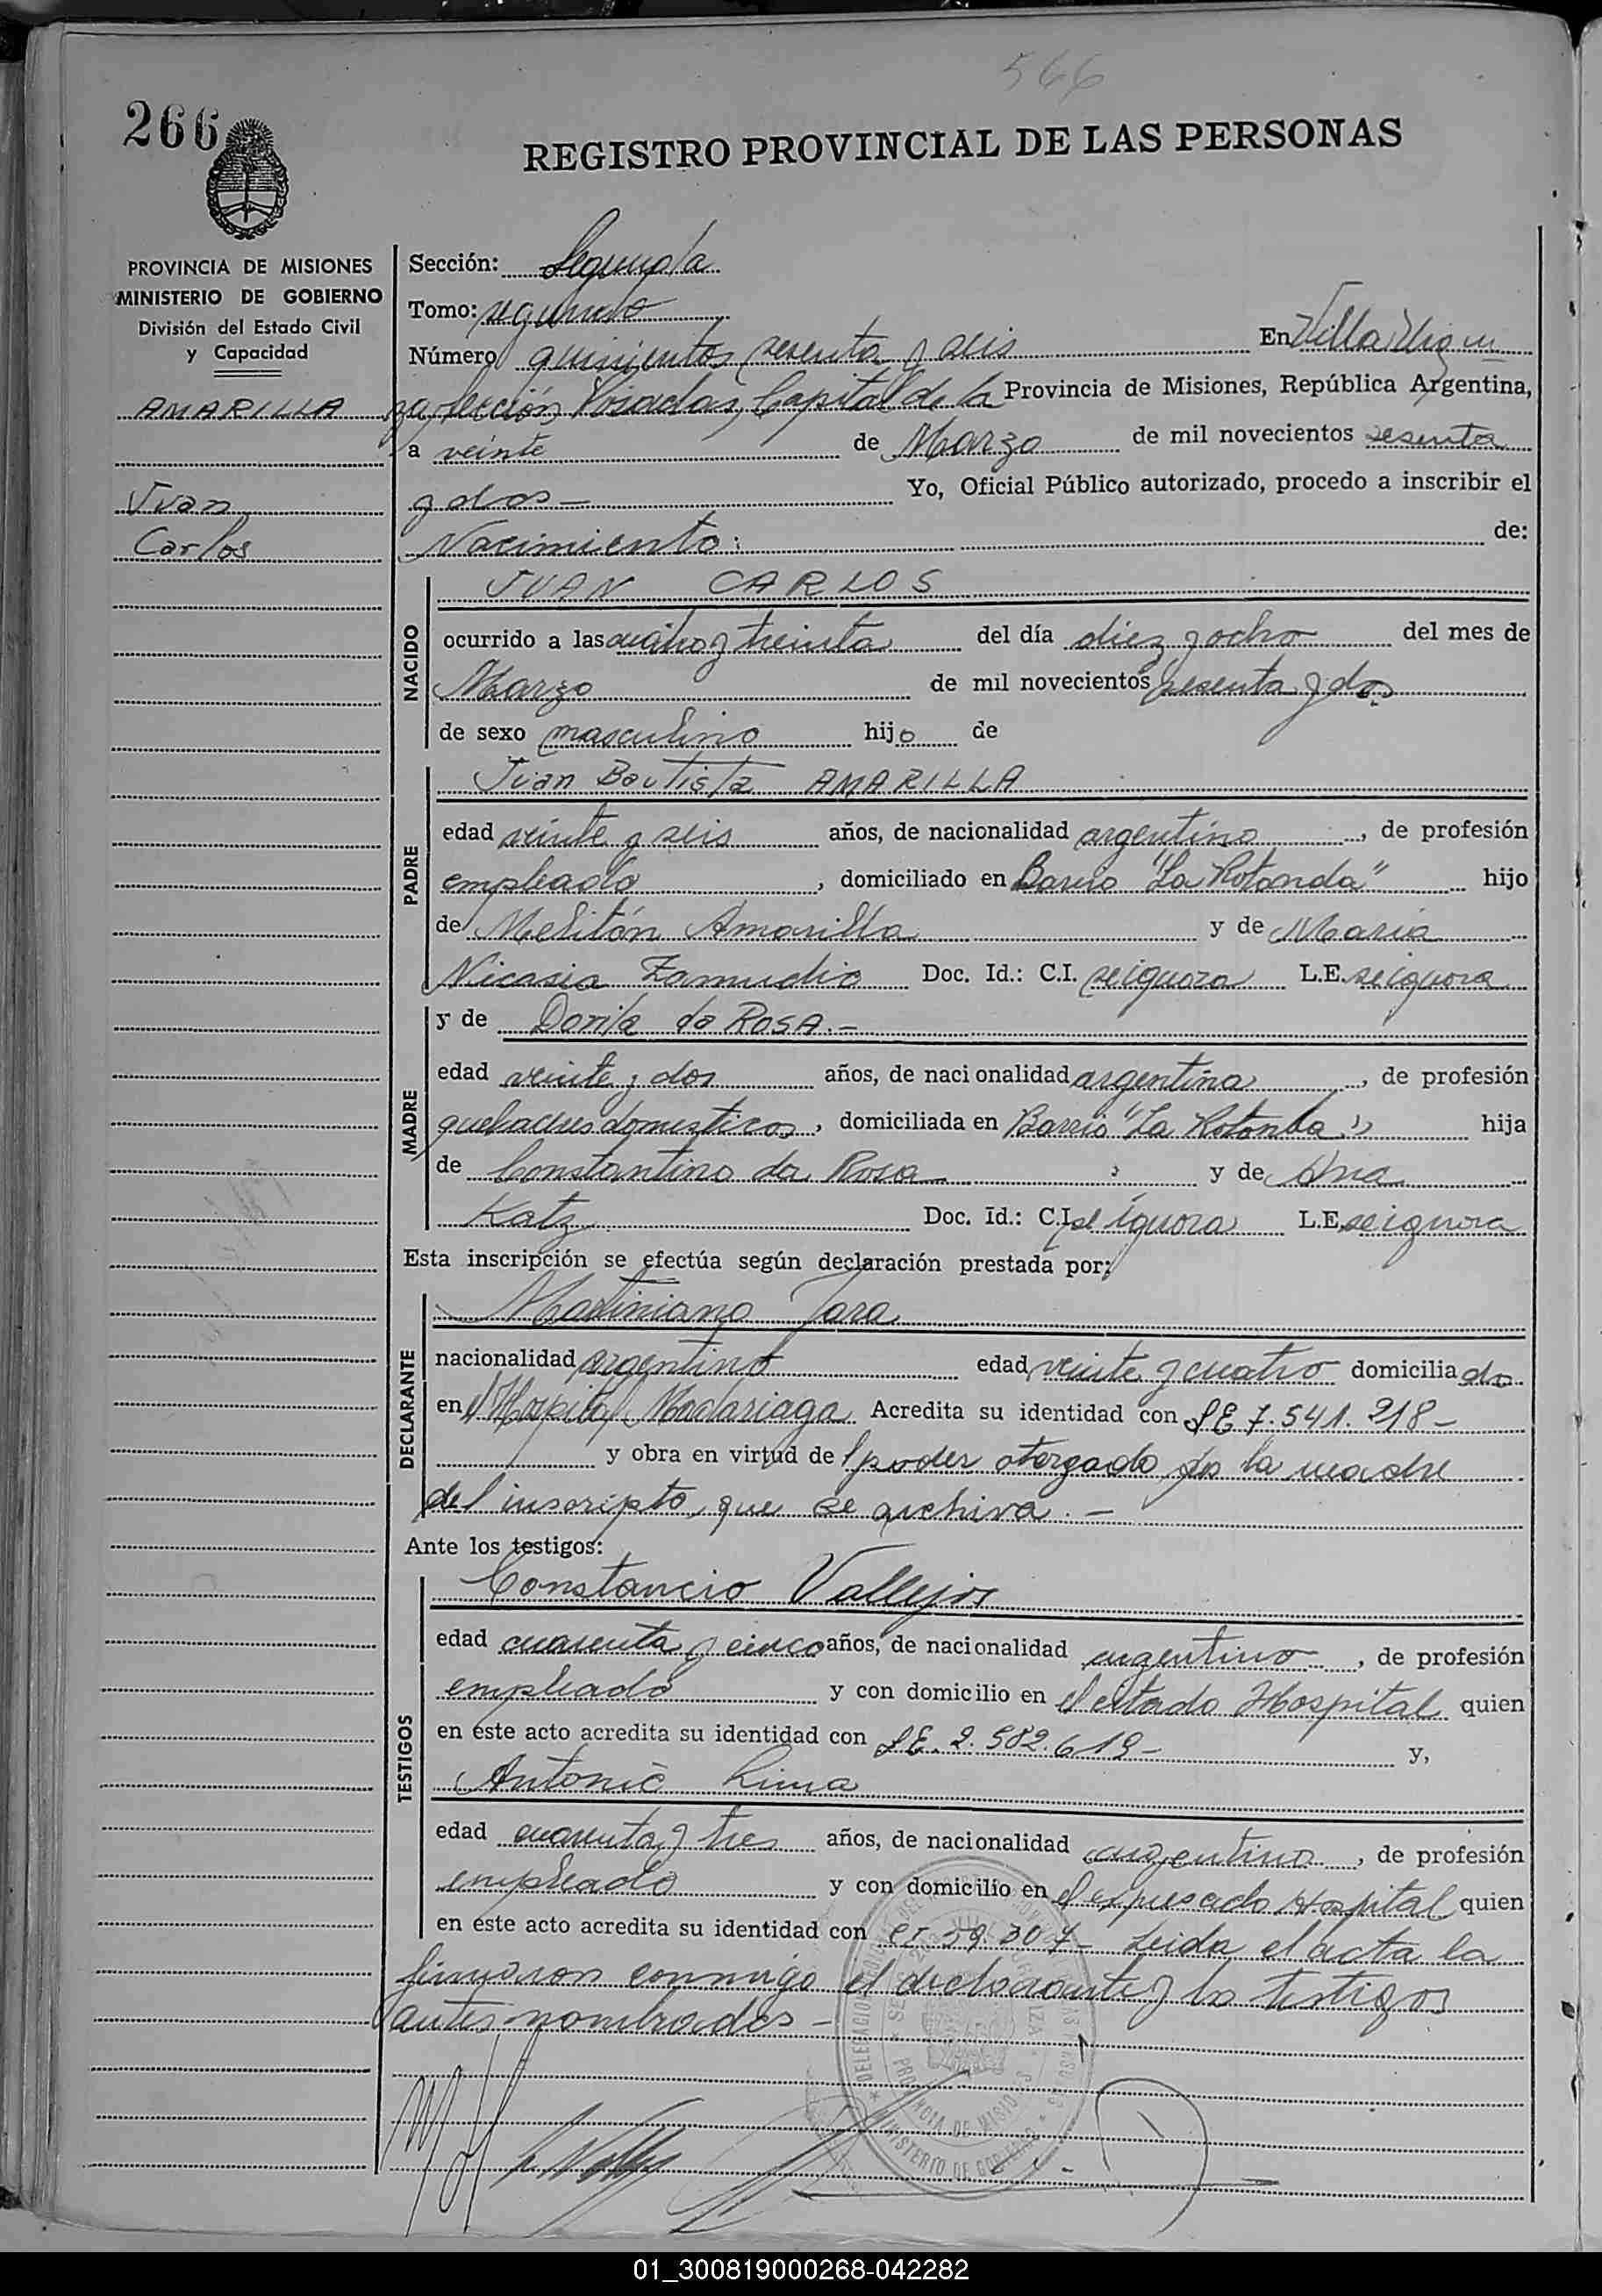 566
266
REGISTRO PROVINCIAL DE LAS PERSONAS
PROVINCIA DE MISIONES
MINISTERIO DE GOBIERNO
División del Estado Civil
y Capacidad
AMARILLA
Juan
Carlos
Sección: Segunda
Tomo: segundo
Número quinientos sesenta y seis En Villa Urqui
za, sección Posadas, Capital de la Provincia de Misiones, República Argentina,
a veinte de Marzo de mil novecientos sesenta
y dos — Yo, Oficial Público autorizado, procedo a inscribir el
Nacimiento: de:
NACIDO
JUAN CARLOS
ocurrido a las cuatro y treinta del día diez y ocho del mes de
Marzo de mil novecientos sesenta y dos
de sexo masculino hijo de
PADRE
Juan Bautista AMARILLA
edad veinte y seis años, de nacionalidad argentino, de profesión
empleado, domiciliado en Barrio "La Rotonda" hijo
de Melitón Amarilla y de María
Nicasia Zamudio Doc. Id.: C.I. se ignora L.E. se ignora
MADRE
y de Dorila da ROSA.—
edad veinte y dos años, de nacionalidad argentina, de profesión
quehaceres domesticos, domiciliada en Barrio "La Rotonda" hija
de Constantino da Rosa y de Ana
Katz Doc. Id.: C.I. se ignora L.E. se ignora
Esta inscripción se efectúa según declaración prestada por:
DECLARANTE
Martiniano Jara
nacionalidad argentino edad veinte y cuatro domiciliado
en el Hospital Madariaga Acredita su identidad con LE 7.541.218—
y obra en virtud del poder otorgado por la madre
del inscripto, que se archiva.—
Ante los testigos:
TESTIGOS
Constancio Vallejos
edad cuarenta y cinco años, de nacionalidad argentino, de profesión
empleado y con domicilio en el citado Hospital quien
en este acto acredita su identidad con LE. 2.582.619— y,
Antonio Lima
edad cuarenta y tres años, de nacionalidad argentino, de profesión
empleado y con domicilio en el expresado Hospital quien
en este acto acredita su identidad con CI 59.307— Leida el acta la
firmaron conmigo el declarante y los testigos
antes nombrados—
PROVINCIA DE MISIONES
MINISTERIO DE GOBIERNO
01_300819000268-042282